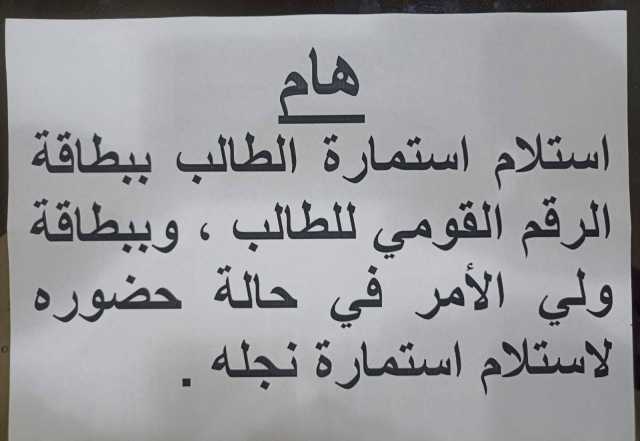 هام
استلام استمارة الطالب ببطاقة
الرقم القومي للطالب ، وببطاقة
ولي الأمر في حالة حضوره
لاستلام استمارة نجله .